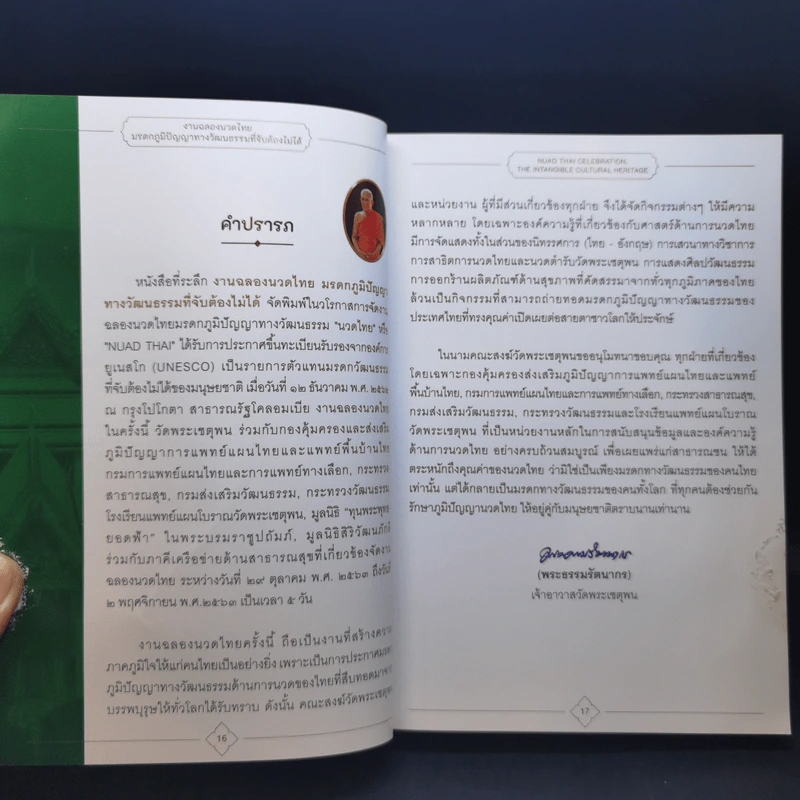 งานฉลองนวดไทย
มรดกภูมิปัญญาทางวัฒนธรรมที่จับต้องไม่ได้
คำปรารภ
หนังสือที่ระลึก งานฉลองนวดไทย มรดกภูมิปัญญา
ทางวัฒนธรรมที่จับต้องไม่ได้ จัดพิมพ์ในวโรกาสการจัดงาน
ฉลองนวดไทยมรดกภูมิปัญญาทางวัฒนธรรม "นวดไทย" หรือ
"NUAD THAI" ได้รับการประกาศขึ้นทะเบียนรับรองจากองค์การ
ยูเนสโก (UNESCO) เป็นรายการตัวแทนมรดกวัฒนธรรม
ที่จับต้องไม่ได้ของมนุษยชาติ เมื่อวันที่ ๑๒ ธันวาคม พ.ศ. ๒๕๖๒
ณ กรุงโบโกตา สาธารณรัฐโคลอมเบีย งานฉลองนวดไทย
ในครั้งนี้ วัดพระเชตุพน ร่วมกับกองคุ้มครองและส่งเสริม
ภูมิปัญญาการแพทย์แผนไทยและแพทย์พื้นบ้านไทย
กรมการแพทย์แผนไทยและการแพทย์ทางเลือก, กระทรวง
สาธารณสุข, กรมส่งเสริมวัฒนธรรม, กระทรวงวัฒนธรรม
โรงเรียนแพทย์แผนโบราณวัดพระเชตุพน, มูลนิธิ "ทุนพระพุทธ
ยอดฟ้า" ในพระบรมราชูปถัมภ์, มูลนิธิสิริวัฒนภักดี
ร่วมกับภาคีเครือข่ายด้านสาธารณสุขที่เกี่ยวข้องจัดงาน
ฉลองนวดไทย ระหว่างวันที่ ๒๙ ตุลาคม พ.ศ. ๒๕๖๓ ถึงวันที่
๒ พฤศจิกายน พ.ศ.๒๕๖๓ เป็นเวลา ๕ วัน
งานฉลองนวดไทยครั้งนี้ ถือเป็นงานที่สร้างความ
ภาคภูมิใจให้แก่คนไทยเป็นอย่างยิ่ง เพราะเป็นการประกาศมรดก
ภูมิปัญญาทางวัฒนธรรมด้านการนวดของไทยที่สืบทอดมาจาก
บรรพบุรุษให้ทั่วโลกได้รับทราบ ดังนั้น คณะสงฆ์วัดพระเชตุพน
16
NUAD THAI CELEBRATION,
THE INTANGIBLE CULTURAL HERITAGE
และหน่วยงาน ผู้ที่มีส่วนเกี่ยวข้องทุกฝ่าย จึงได้จัดกิจกรรมต่างๆ ให้มีความ
หลากหลาย โดยเฉพาะองค์ความรู้ที่เกี่ยวข้องกับศาสตร์ด้านการนวดไทย
มีการจัดแสดงทั้งในส่วนของนิทรรศการ (ไทย - อังกฤษ) การเสวนาทางวิชาการ
การสาธิตการนวดไทยและนวดตำรับวัดพระเชตุพน การแสดงศิลปวัฒนธรรม
การออกร้านผลิตภัณฑ์ด้านสุขภาพที่คัดสรรมาจากทั่วทุกภูมิภาคของไทย
ล้วนเป็นกิจกรรมที่สามารถถ่ายทอดมรดกภูมิปัญญาทางวัฒนธรรมของ
ประเทศไทยที่ทรงคุณค่าเปิดเผยต่อสายตาชาวโลกให้ประจักษ์
ในนามคณะสงฆ์วัดพระเชตุพนขออนุโมทนาขอบคุณ ทุกฝ่ายที่เกี่ยวข้อง
โดยเฉพาะกองคุ้มครองส่งเสริมภูมิปัญญาการแพทย์แผนไทยและแพทย์
พื้นบ้านไทย, กรมการแพทย์แผนไทยและการแพทย์ทางเลือก, กระทรวงสาธารณสุข,
กรมส่งเสริมวัฒนธรรม, กระทรวงวัฒนธรรมและโรงเรียนแพทย์แผนโบราณ
วัดพระเชตุพน ที่เป็นหน่วยงานหลักในการสนับสนุนข้อมูลและองค์ความรู้
ด้านการนวดไทย อย่างครบถ้วนสมบูรณ์ เพื่อเผยแพร่แก่สาธารณชน ให้ได้
ตระหนักถึงคุณค่าของนวดไทย ว่ามิใช่เป็นเพียงมรดกทางวัฒนธรรมของคนไทย
เท่านั้น แต่ได้กลายเป็นมรดกทางวัฒนธรรมของคนทั้งโลก ที่ทุกคนต้องช่วยกัน
รักษาภูมิปัญญานวดไทย ให้อยู่คู่กับมนุษยชาติตราบนานเท่านาน
(พระธรรมรัตนากร)
เจ้าอาวาสวัดพระเชตุพน
17